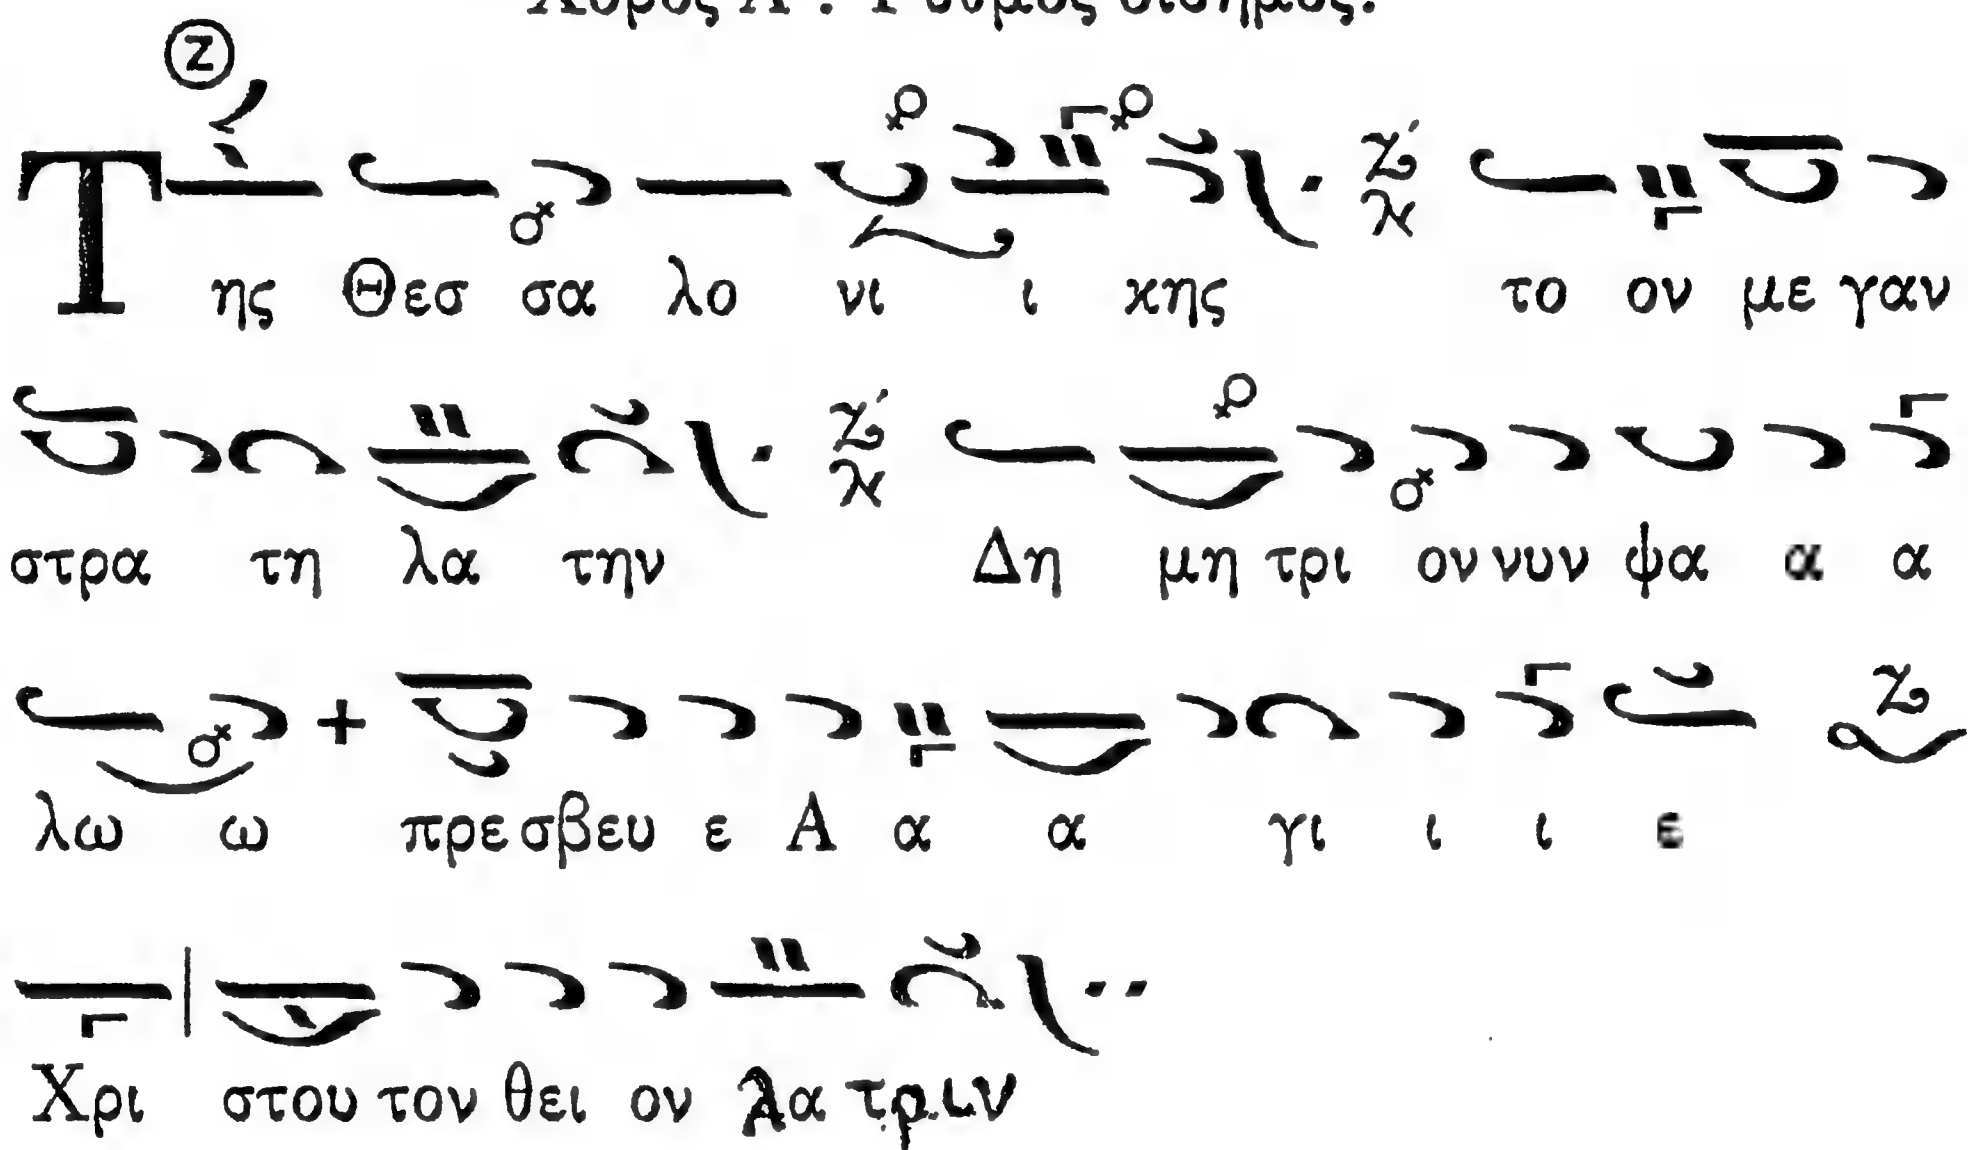 Χορὸς Α΄. Ῥυθμὸς δίσημος.
Ζ
Της Θεσ σα λο νι ι κης το ον με γαν
στρα τη λα την Δη μη τρι ον νυν ψα α α
λω ω πρε σβευ ε Α α α γι ι ι ε
Χρι στου τον θει ον λα τριν